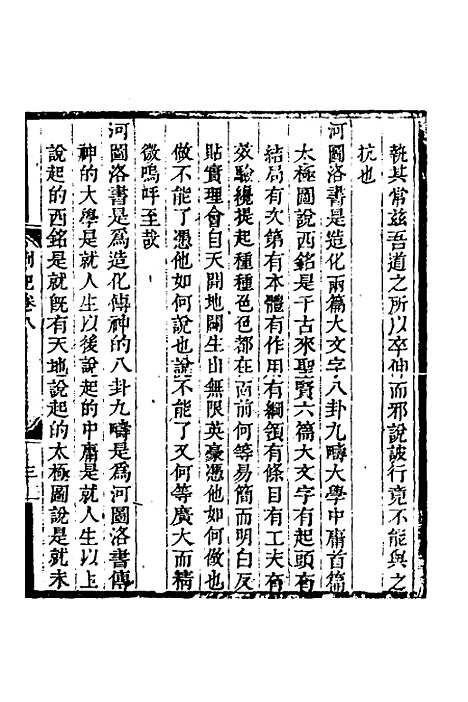 執其常茲吾道之所以卒伸而邪說詖行竟不能與之
抗也
河圖洛書是造化兩篇大文字八卦九疇大學中庸首篇
太極圖說西銘是千古來聖賢六篇大文字有起頭有
結局有次第有本體有作用有綱領有條目有工夫有
效驗纔提起種種色色都在面前何等易簡而明白反
貼實理會自天開地闢生出無限英豪憑他如何做也
做不能了憑他如何說也說不能了又何等廣大而精
微嗚呼至哉
河圖洛書是為造化傳神的八卦九疇是為河圖洛書傳
神的大學是就人生以後說起的中庸是就人生以上
說起的西銘是就旣有天地說起的太極圖說是就未
劄記卷八
三